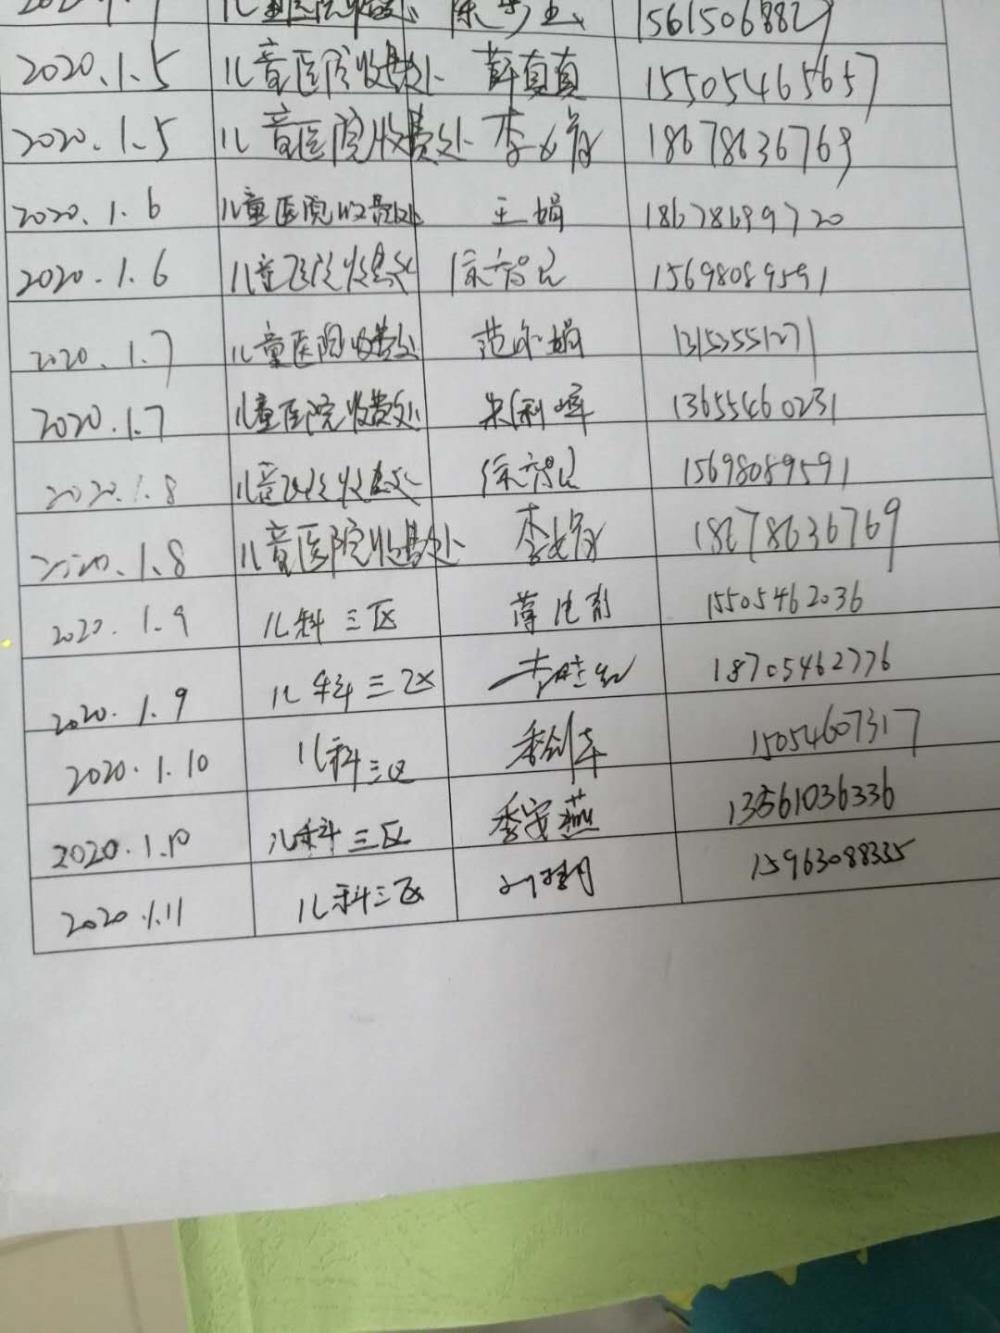 儿童医院收费处 15615068829
2020.1.5 儿童医院收费处 薛真真 15505465657
2020.1.5 儿童医院收费处 李 18678636769
2020.1.6 儿童医院收费处 王娟 18678699720
2020.1.6 儿童医院收费处 徐 15698089591
2020.1.7 儿童医院收费处 范 娟 13153551271
2020.1.7 儿童医院收费处 利 13655460231
2020.1.8 儿童医院收费处 徐 15698089591
2020.1.8 儿童医院收费处 李 18678636769
2020.1.9 儿科三区 15505462036
2020.1.9 儿科三区 李 18705462776
2020.1.10 儿科三区 15054607317
2020.1.10 儿科三区 季安燕 13561036336
2020.1.11 儿科三区 15963088335